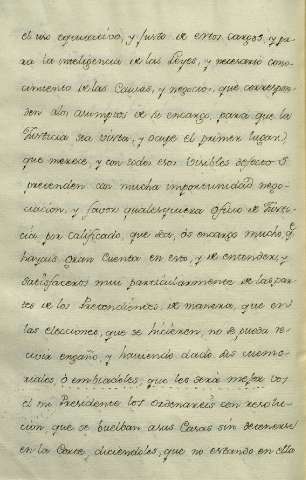 el uso equivativo, y justo de estos cargos, y pa
ra la inteligencia de las Leyes, y necesario cono
cimiento de las Causas, y negocios, que correspon
den alos asumptos de su encargo, para que la
Justicia sea vista, y ocupe el primer lugar,
que merece, y con todos esos visibles defectos
pretenden con mucha importunidad nego
ciacion, y favor qualesquiera oficio de Justi
cia por calificado, que sea, os encargo mucho, q̃
hayais gran Cuenta en esto, y de entender, y
satisfaceros mui particularmente de las par
tes de los Pretendientes, de manera, que en
las elecciones, que se hicieren, no se pueda re
civir engaño, y haviendo dado sus memo
riales, ò embiadoles, que les será mejor vos
el mi Presidente los ordenareis con resolu
cion, que se buelban a sus Casas sin detenerse
en la Corte, diciendoles, que no estando en ella